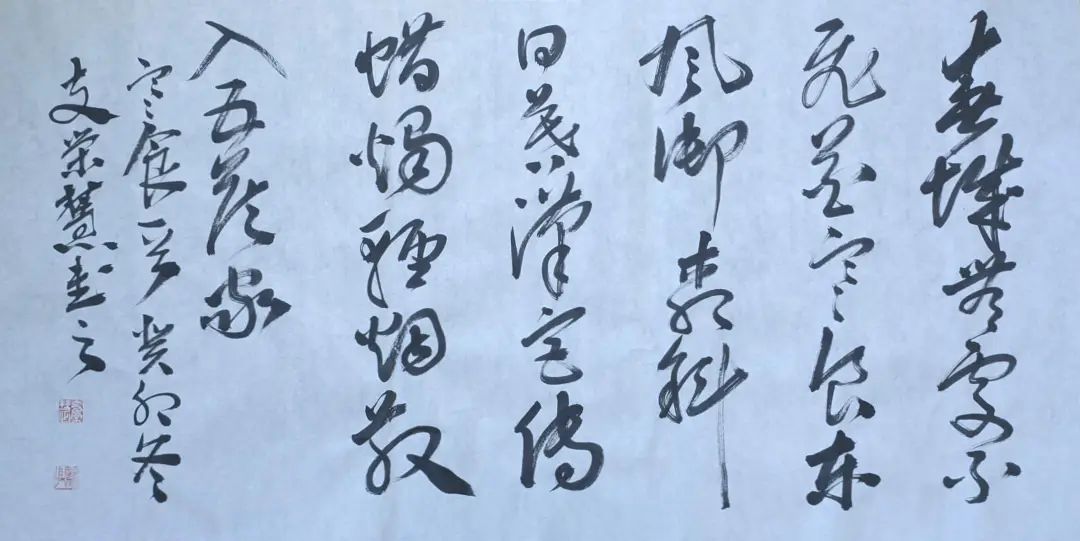 春城無處不
飛花寒食東
風御柳斜
日暮漢宮傳
蜡燭輕烟散
入五侯家
寒食一首癸卯冬
支榮慧書之